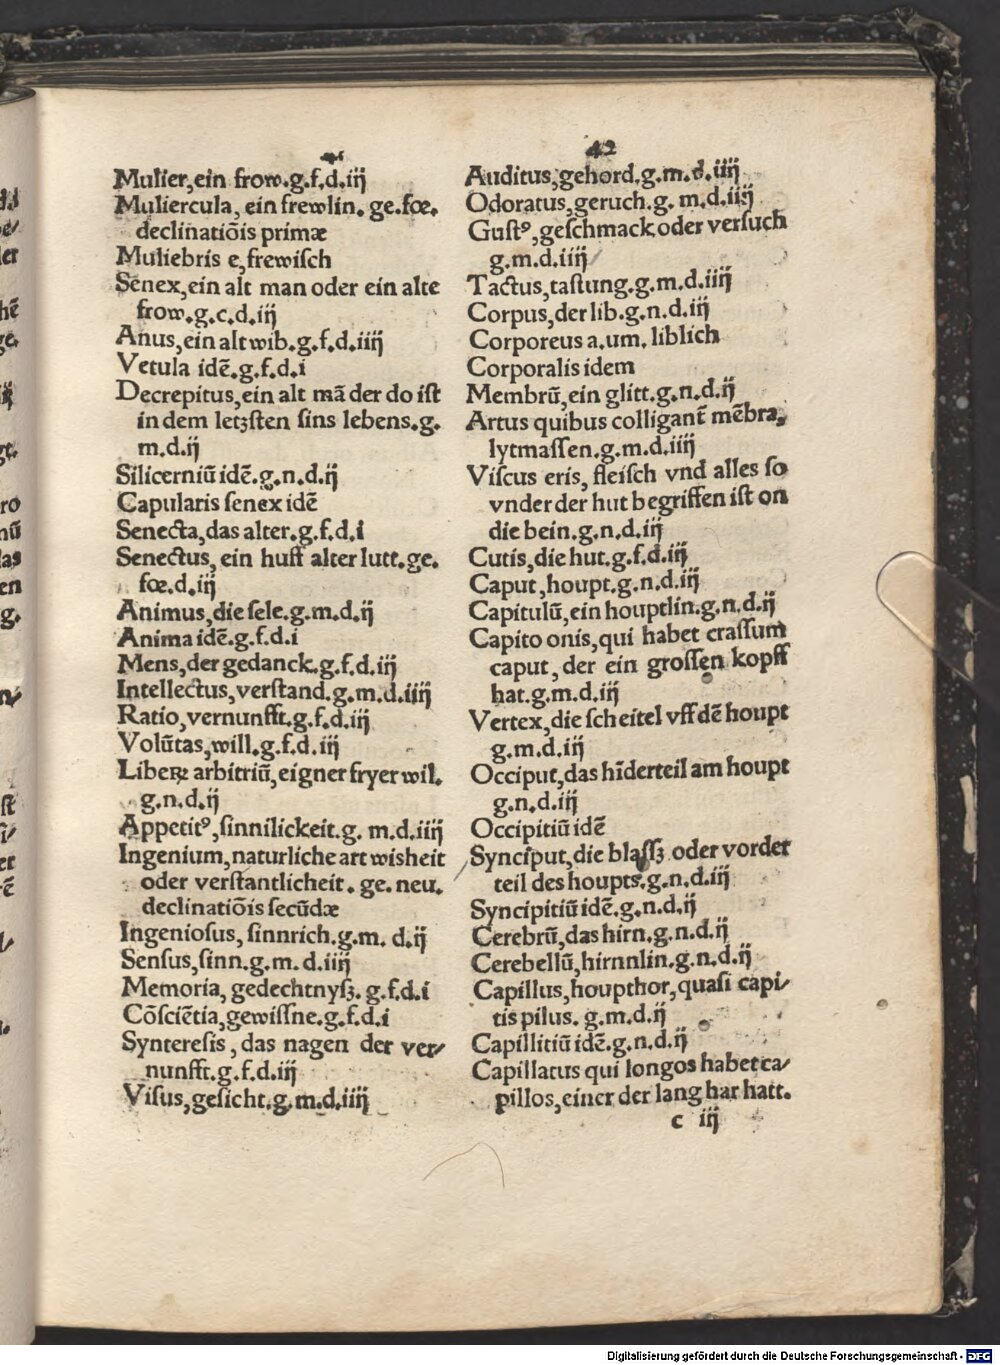 42
Mulier,ein frow.g.f.d.iij
Muliercula, ein frewlin. ge.fœ.
declinatiõis primæ
Muliebris e,frewisch
Senex,ein alt man oder ein alte
frow.g.c.d.iij
Anus,ein alt wib.g.f.d.iiij
Vetula idẽ.g.f.d.i
Decrepitus,ein alt mã der do ist
in dem letzsten sins lebens.g.
m.d.ij
Silicerniũ idẽ.g.n.d.ij
Capularis senex idẽ
Senecta,das alter.g.f.d.i
Senectus, ein huff alter lutt.ge.
fœ.d.iij
Animus,die sele.g.m.d.ij
Anima idẽ.g.f.d.i
Mens,der gedanck.g.f.d.iij
Intellectus,verstand.g.m.d.iiij
Ratio,vernunfft.g.f.d.iij
Volũtas,will.g.f.d.iij
Liberꝝ arbitriũ,eigner fryer wil.
g.n.d.ij
Appetitꝰ,sinnilickeit.g. m.d.iiij
Ingenium,naturliche art wisheit
oder verstantlicheit. ge. neu.
declinatiõis secũdæ
Ingeniosus, sinnrich.g.m. d.ij
Sensus,sinn.g.m. d.iiij
Memoria, gedechtnysz. g.f.d.i
Cõsciẽtia,gewissne.g.f.d.i
Synteresis, das nagen der ver/
nunfft.g.f.d.iij
Visus,gesicht.g.m.d.iiij
Auditus,gehord.g.m.d.iiij
Odoratus,geruch.g. m.d.iiij
Gustꝰ,geschmack oder versuch
g.m.d.iiij
Tactus,tastung.g.m.d.iiij
Corpus,der lib.g.n.d.iij
Corporeus a.um. liblich
Corporalis idem
Membrũ,ein glitt.g.n.d.ij
Artus quibus colligant̃ mẽbra,
lytmassen.g.m.d.iiij
Viscus eris, fleisch vnd alles so
vnder der hut begriffen ist on
die bein.g.n.d.iij
Cutis,die hut.g.f.d.iij
Caput,houpt.g.n.d.iij
Capitulũ,ein houptlin.g.n.d.ij
Capito onis,qui habet crassum
caput, der ein grossen kopff
hat.g.m.d.iij
Vertex,die scheitel vff dẽ houpt
g.m.d.iij
Occiput,das hĩderteil am houpt
g.n.d.iij
Occipitiũ idẽ
Synciput,die blassz oder vorder
teil des houpts.g.n.d.iij
Syncipitiũ idẽ.g.n.d.ij
Cerebrũ,das hirn.g.n.d.ij
Cerebellũ,hirnnlin.g.n.d.ij
Capillus,houpthor,quasi capi/
tis pilus. g.m.d.ij
Capillitiũ idẽ.g.n.d.ij
Capillatus qui longos habet ca/
pillos,einer der lang har hatt.
c iij
Digitalisierung gefördert durch die Deutsche Forschungsgemeinschaft - DFG